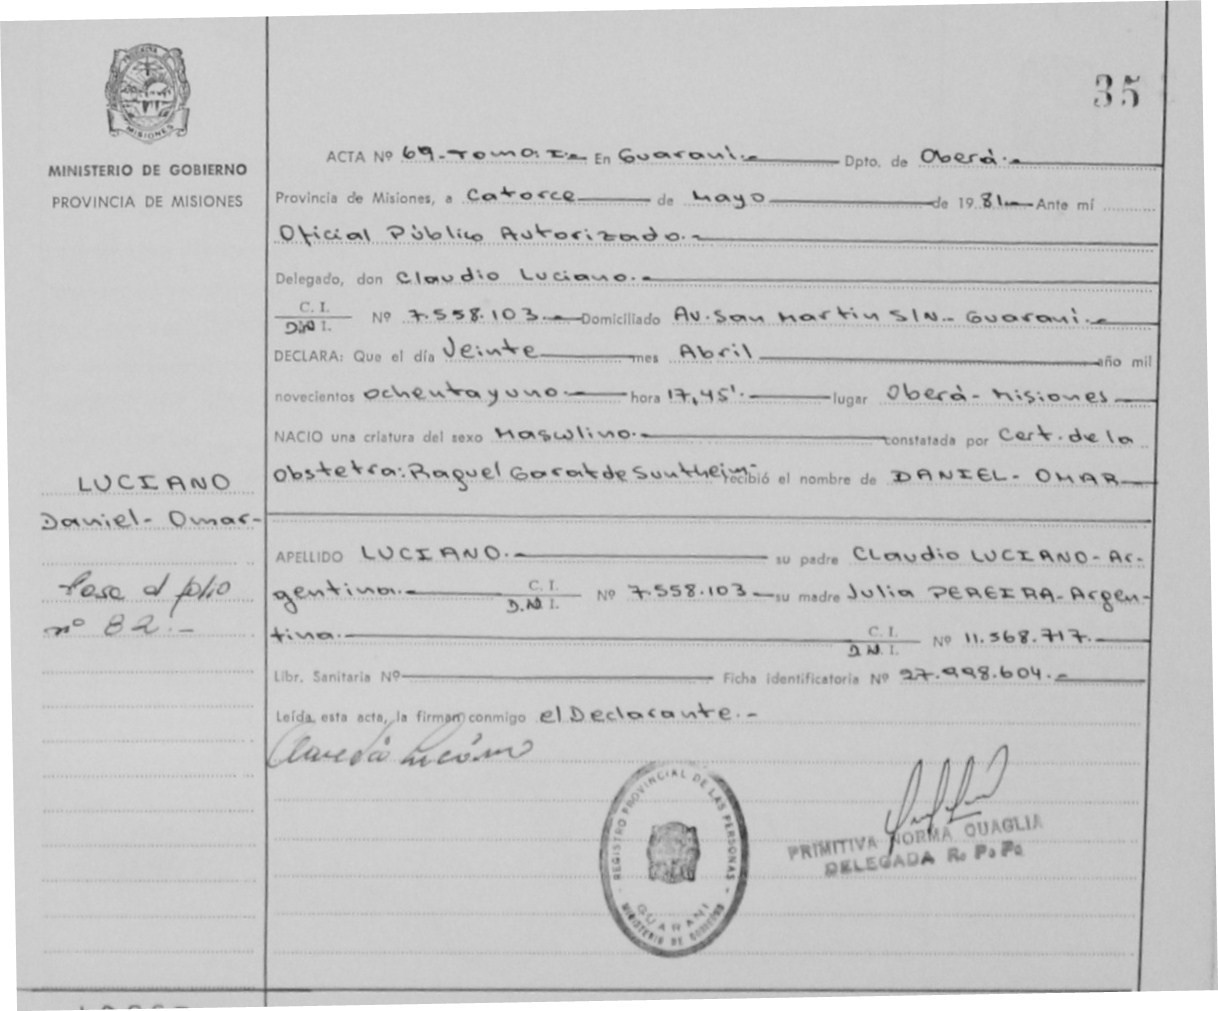 35
MISIONES
MINISTERIO DE GOBIERNO
PROVINCIA DE MISIONES
ACTA Nº 69.-Tomo I.- En Guaraní.- Dpto. de Oberá.-
Provincia de Misiones, a Catorce de Mayo de 19 81.- Ante mí
Oficial Público Autorizado.-
Delegado, don Claudio Luciano.-
C. I.
D.N.I. Nº 7.558.103.- Domiciliado Av. San Martin S/N.- Guaraní.-
DECLARA: Que el día Veinte mes Abril año mil
novecientos ochenta y uno.- hora 17,45'.- lugar Oberá- Misiones
NACIO una criatura del sexo Masculino.- constatada por Cert. de la
Obstetra: Raquel Garat de Suntheim- recibió el nombre de DANIEL- OMAR
LUCIANO
Daniel- Omar-
APELLIDO LUCIANO.- su padre Claudio LUCIANO- Ar-
gentina.- C. I. D.N.I. Nº 7.558.103 su madre Julia PEREIRA- Argen-
tina.- C. I. D.N.I. Nº 11.568.717.-
Pasa al folio
nº 82.-
Libr. Sanitaria Nº Ficha identificatoria Nº 27.998.604.-
Leída esta acta, la firman conmigo el Declarante.-
REGISTRO PROVINCIAL DE LAS PERSONAS
GUARANI
MINISTERIO DE GOBIERNO
PRIMITIVA NORMA QUAGLIA
DELEGADA R. P. Ps